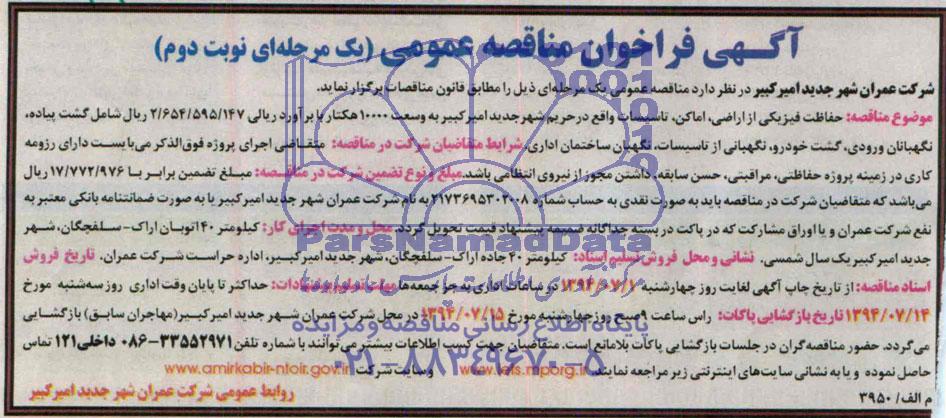 آگـــهی فراخوان مناقصه عمومی (یک مرحله‌ای نوبت دوم)
شرکت عمران شهر جدید امیرکبیر در نظر دارد مناقصه عمومی یک مرحله‌ای ذیل را مطابق قانون مناقصات برگزار نماید.
موضوع مناقصه: حفاظت فیزیکی از اراضی، اماکن، تاسیسات واقع در حریم شهر جدید امیرکبیر به وسعت ۱۰۰۰۰ هکتار با برآورد ریالی ۲/۶۵۴/۵۹۵/۱۴۷ ریال شامل گشت پیاده،
نگهبانان ورودی، گشت خودرو، نگهبانی از تاسیسات، نگهبان ساختمان اداری. شرایط متقاضیان شرکت در مناقصه: متقـاضی اجرای پروژه فوق‌الذکر می‌بایست دارای رزومه
کاری در زمینه پروژه حفاظتی، مراقبتی، حسن سابقه، داشتن مجوز از نیروی انتظامی باشد. مبلغ و نوع تضمین شرکت در مناقصه: مبلـغ تضمین برابـر بـا ۱۷/۷۷۲/۹۷۶ ریال
می‌باشد که متقاضیان شرکت در مناقصه باید به صورت نقدی به حساب شماره ۲۱۷۳۶۹۵۳۰۲۰۰۸ به نام شرکت عمران شهر جدید امیرکبیر یا به صورت ضمانتنامه بانکی معتبر به
نفع شرکت عمران و یا اوراق مشارکت که در پاکت در بسته جداگانه ضمیمه پیشنهاد قیمت تحویل گردد. محل و مدت اجرای کار: کیلومتر ۴۰ اتوبان اراک – سلفچگان، شهر
جدید امیرکبیر یک سال شمسی. نشانی و محل فروش و تسلیم اسناد: کیلومتر ۴۰ جاده اراک – سلفچگان، شهر جدید امیرکبیر، اداره حراست شـرکت عمران. تاریخ فروش
اسناد مناقصه: از تاریخ چاپ آگهی لغایت روز چهارشنبه ۱۳۹۴/۰۷/۱ در ساعات اداری به جز جمعه‌ها مهلت تسلیم پیشنهادات: حداکثر تا پایان وقت اداری روز سه‌شنبه مورخ
۱۳۹۴/۰۷/۱۴ تاریخ بازگشایی پاکات: راس ساعت ۹ صبح روز چهارشنبه مورخ ۱۳۹۴/۰۷/۱۵ در محل شرکت عمران شهر جدید امیرکبیر (مهاجران سابق) بازگشایی
می‌گردد. حضور مناقصه‌گران در جلسات بازگشایی پاکات بلامانع است. متقاضیان جهت کسب اطلاعات بیشتر می‌توانند با شماره تلفن ۳۳۵۵۲۹۷۱-۰۸۶ داخلی ۱۲۱ تماس
حاصل نموده و یا به نشانی سایت‌های اینترنتی زیر مراجعه نمایند www.iets.mporg.ir و سایت شرکت www.amirkabir-ntoir.gov.ir
روابط عمومی شرکت عمران شهر جدید امیرکبیر
م الف/ ۳۹۵۰
ParsNamadData
پایگاه اطلاع رسانی مناقصه و مزایده
۰۲۱-۸۸۳۴۹۶۷۰-۵